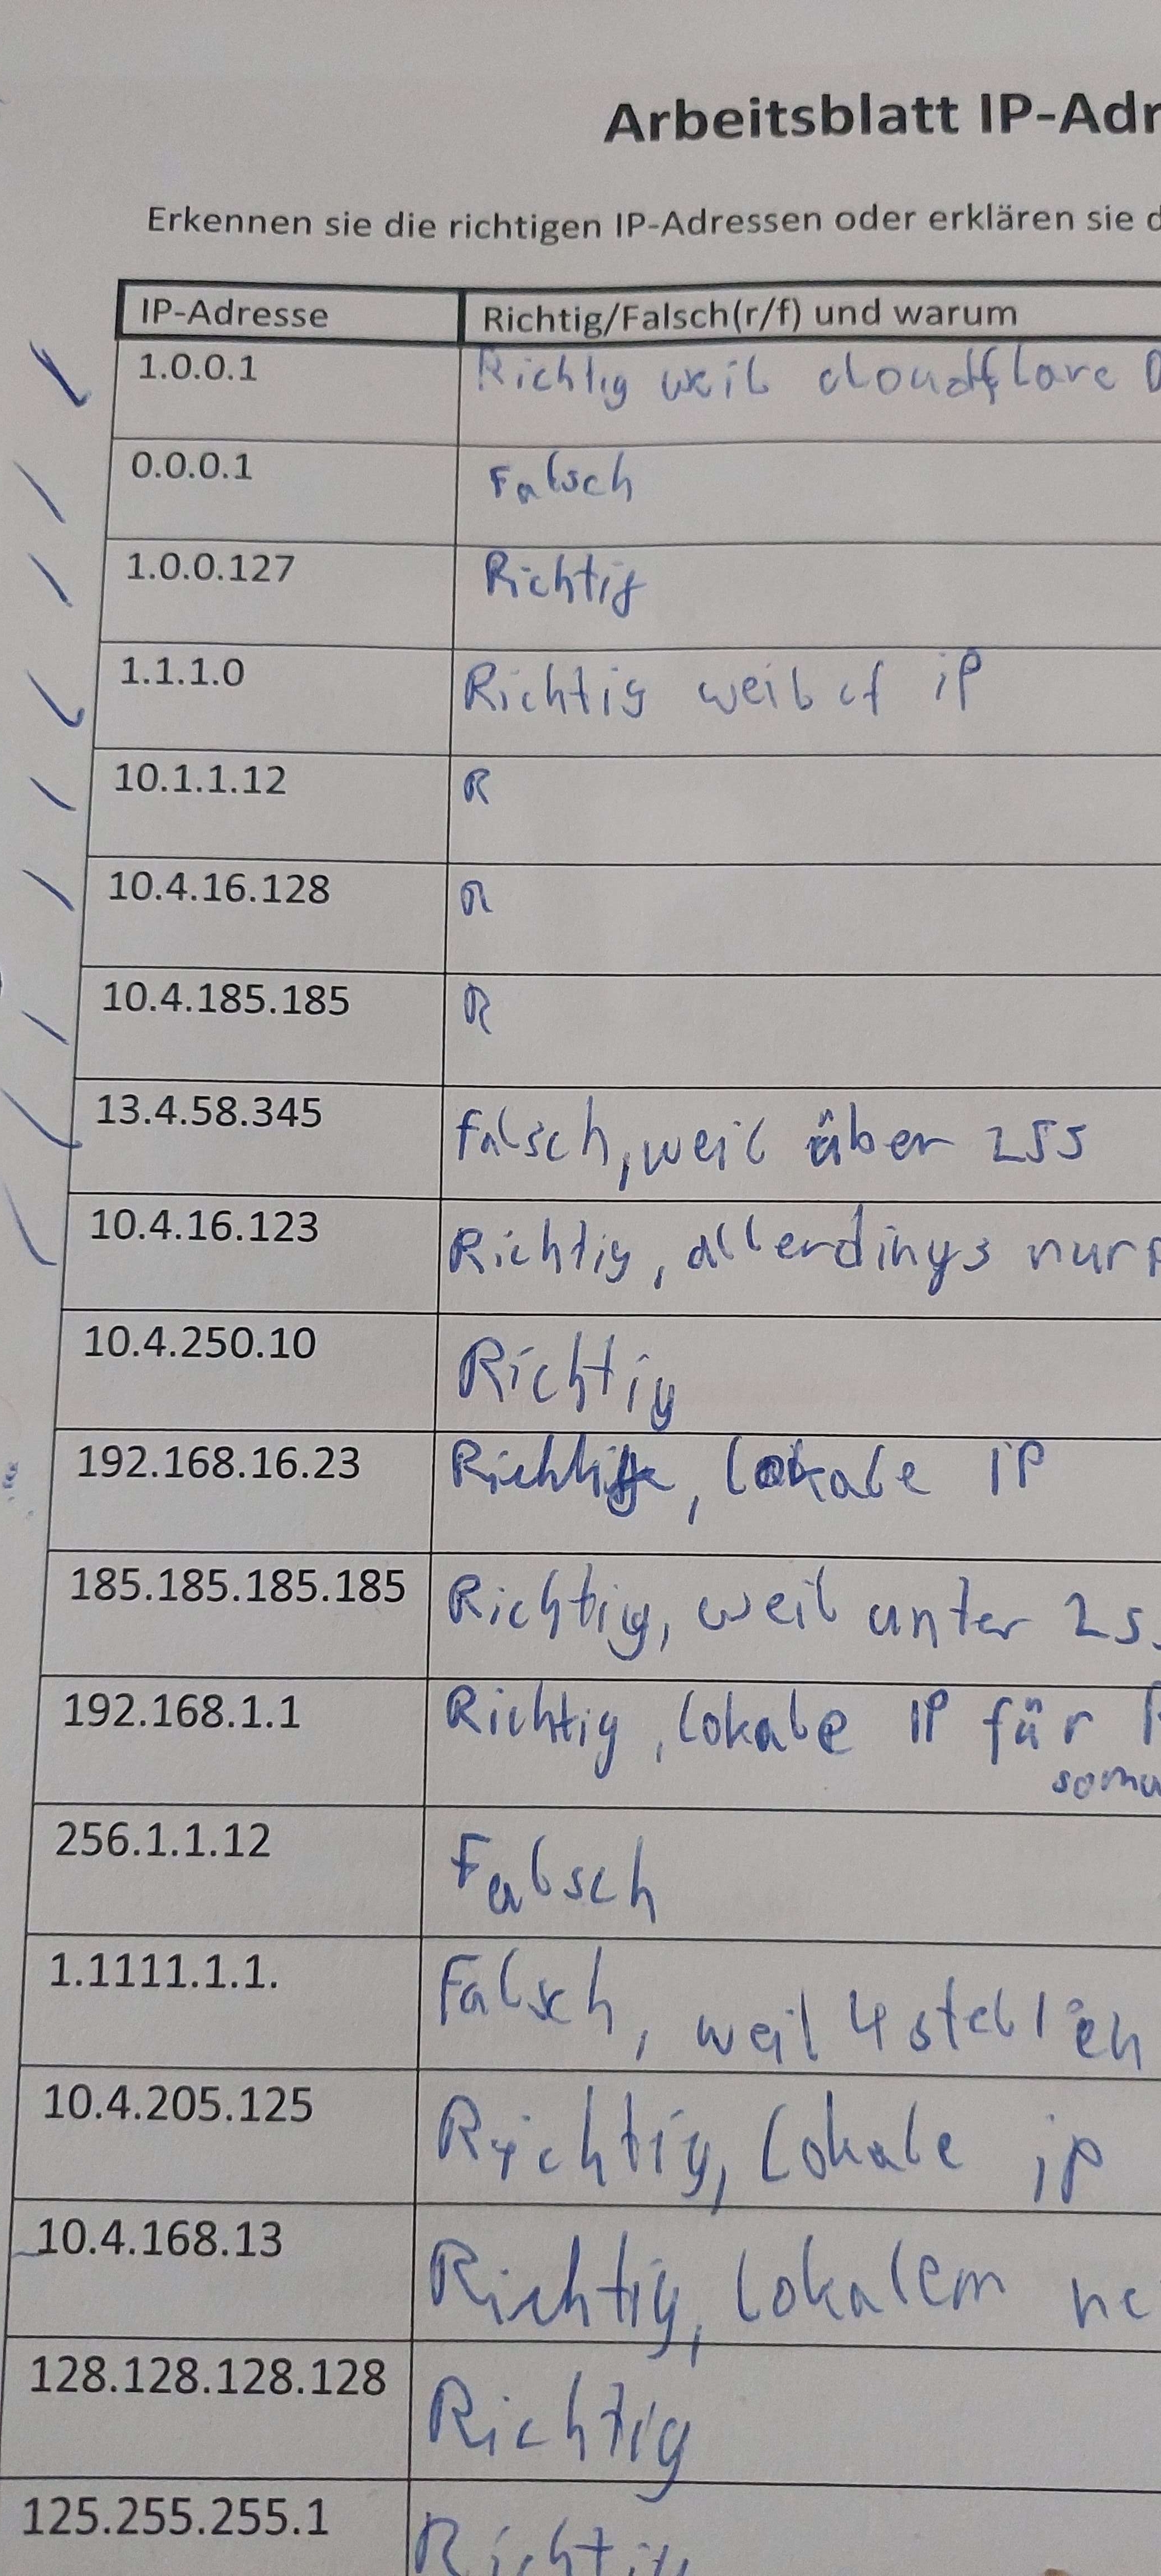 Arbeitsblatt IP-Adr
Erkennen sie die richtigen IP-Adressen oder erklären sie d
IP-Adresse Richtig/Falsch(r/f) und warum
1.0.0.1 Richtig weil cloudflare D
0.0.0.1 Falsch
1.0.0.127 Richtig
1.1.1.0 Richtig weil cf iP
10.1.1.12 R
10.4.16.128 R
10.4.185.185 R
13.4.58.345 falsch, weil über 255
10.4.16.123 Richtig, allerdings nur
10.4.250.10 Richtig
192.168.16.23 Richtig, lokale IP
185.185.185.185 Richtig, weil unter 25
192.168.1.1 Richtig, lokale IP für
256.1.1.12 Falsch
1.1111.1.1. Falsch, weil 4 stellen
10.4.205.125 Richtig, lokale ip
10.4.168.13 Richtig, lokalem ne
128.128.128.128 Richtig
125.255.255.1 Richtig